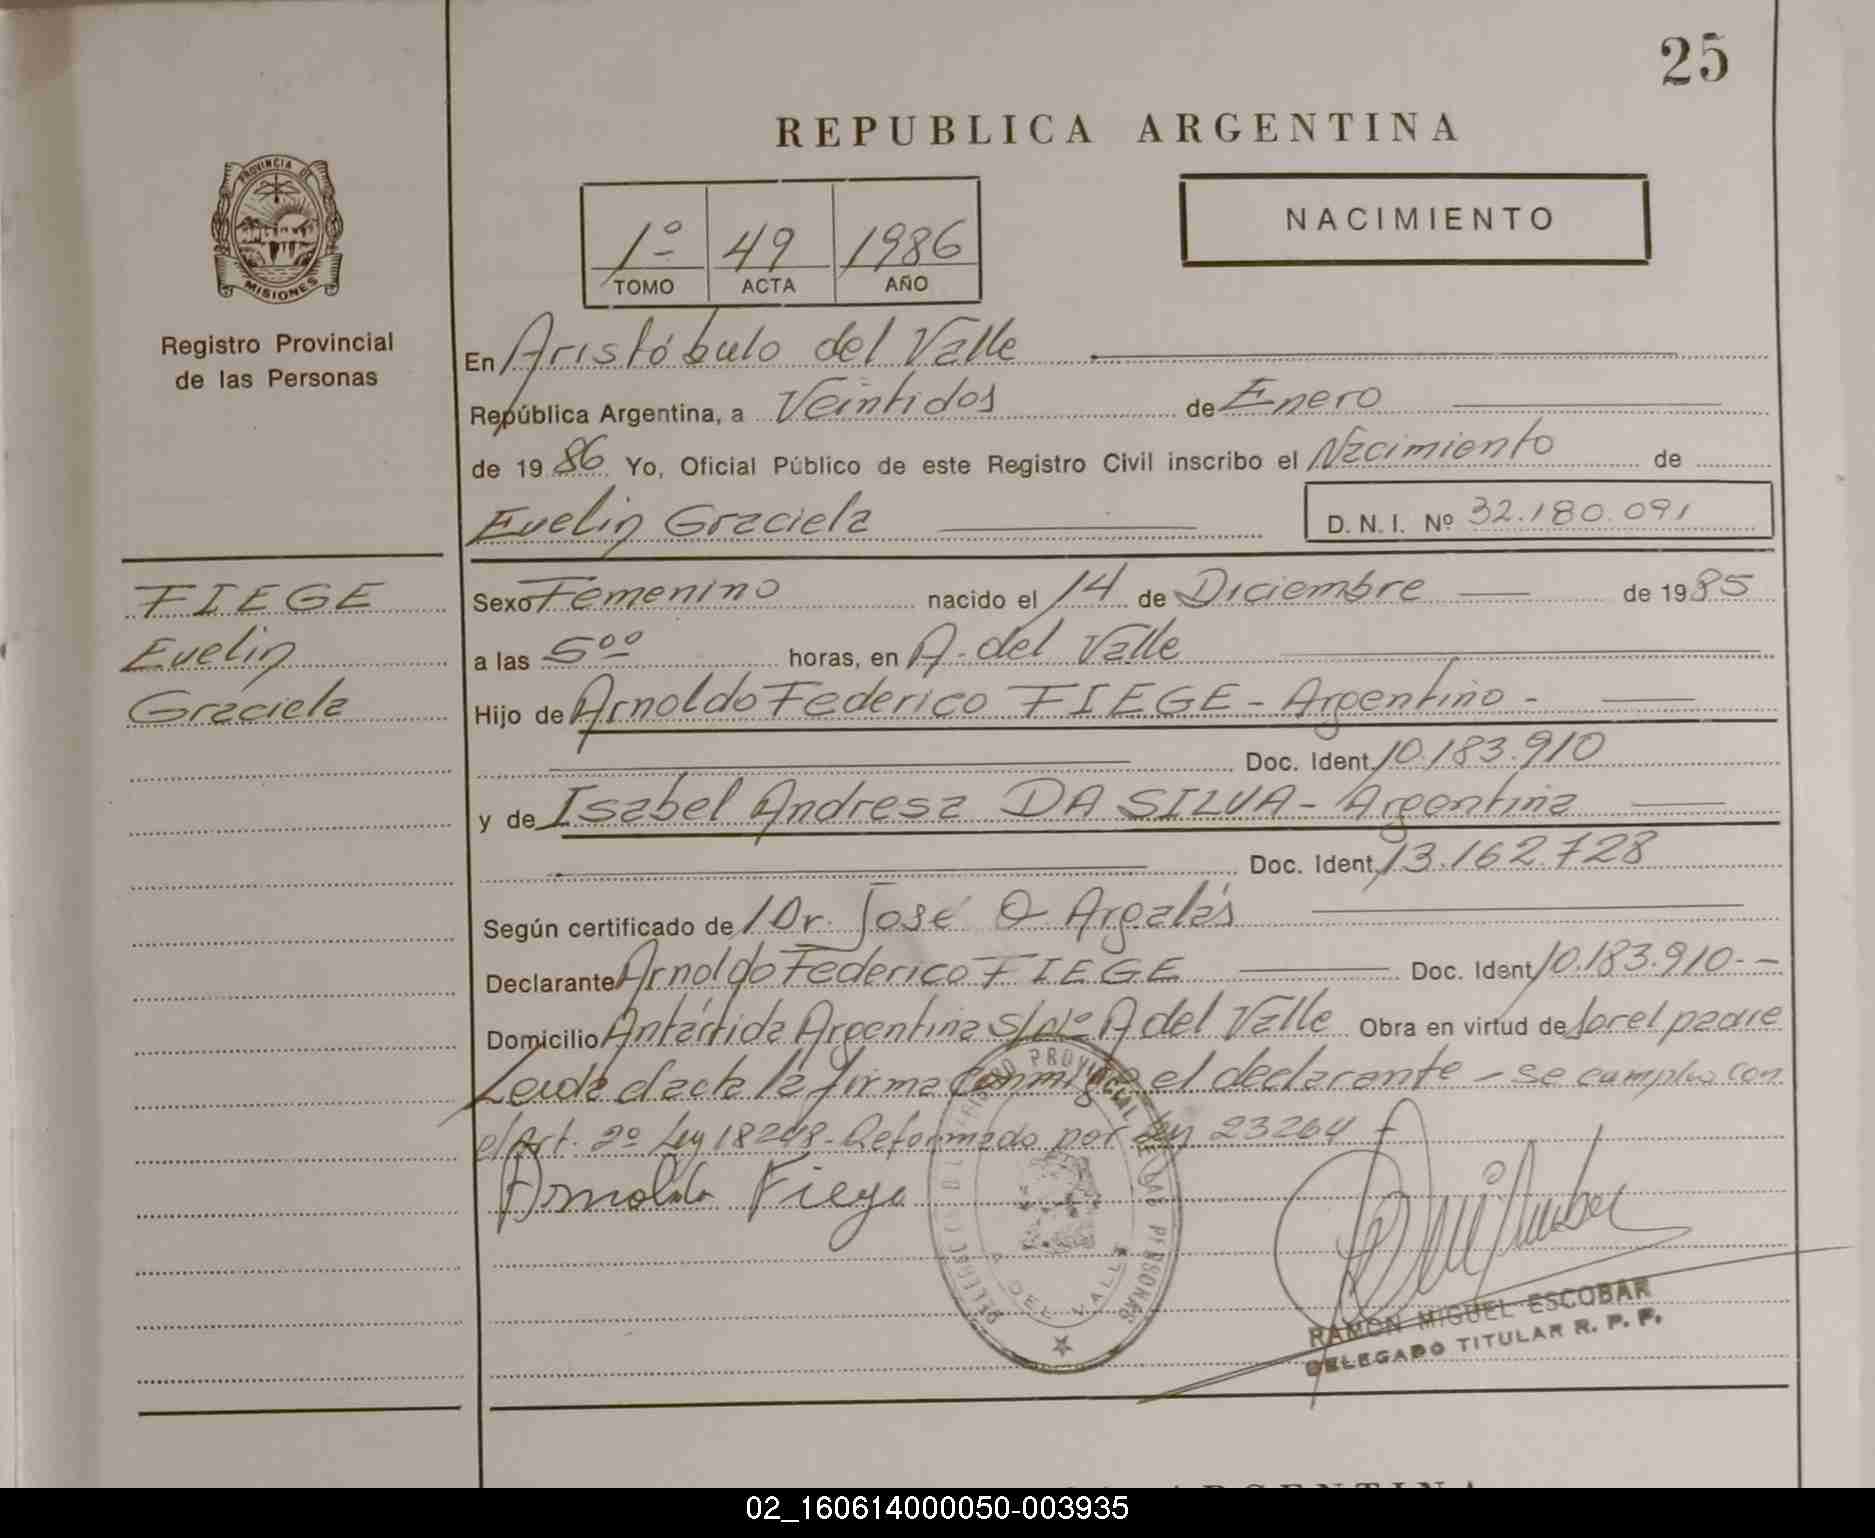 25
REPUBLICA ARGENTINA
PROVINCIA DE
MISIONES
Registro Provincial
de las Personas
1º 49 1986
TOMO ACTA AÑO
NACIMIENTO
En Aristóbulo del Valle
República Argentina, a Veintidos de Enero
de 1986 Yo, Oficial Público de este Registro Civil inscribo el Nacimiento de
Evelin Graciela D. N. I. Nº 32.180.091
FIEGE
Evelin
Graciela
Sexo Femenino nacido el 14 de Diciembre de 1985
a las 5ºº horas, en A. del Valle
Hijo de Arnoldo Federico FIEGE - Argentino -
Doc. Ident. 10.183.910
y de Isabel Andresa DA SILVA - Argentina
Doc. Ident. 13.162.728
Según certificado de Dr. José O Argalás
Declarante Arnoldo Federico FIEGE Doc. Ident. 10.183.910--
Domicilio Antártida Argentina S/Nº A del Valle Obra en virtud de ser el padre
Leida el acta la firma conmigo el declarante - se cumplio con
el Art. 2º Ley 18248 - Reformado por Ley 23264
Arnoldo Fiege
PROVINCIAL DE LAS PERSONAS
A DEL VALLE
RAMON MIGUEL ESCOBAR
DELEGADO TITULAR R. P. P.
ARGENTINA
02_160614000050-003935